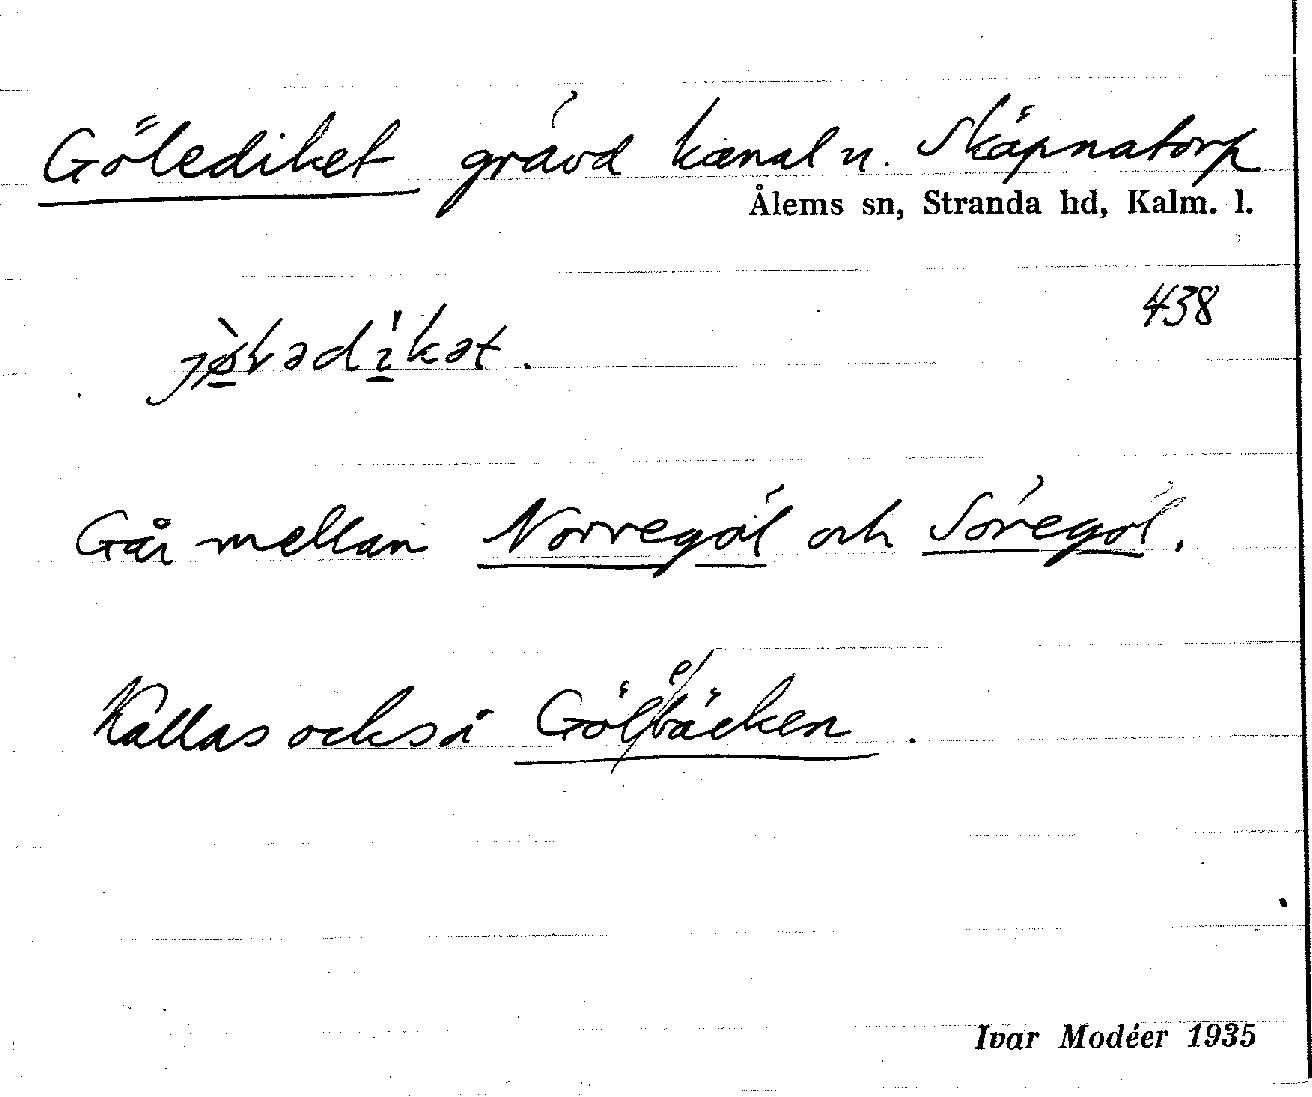 Gölediket grävd kanal u. Skäpnatorp
Ålems sn, Stranda hd, Kalm. l.
438
jø̀lədi̍kət.
Går mellan Norregöl och Söregöl.
Kallas också Gölebäcken.
Ivar Modéer 1935